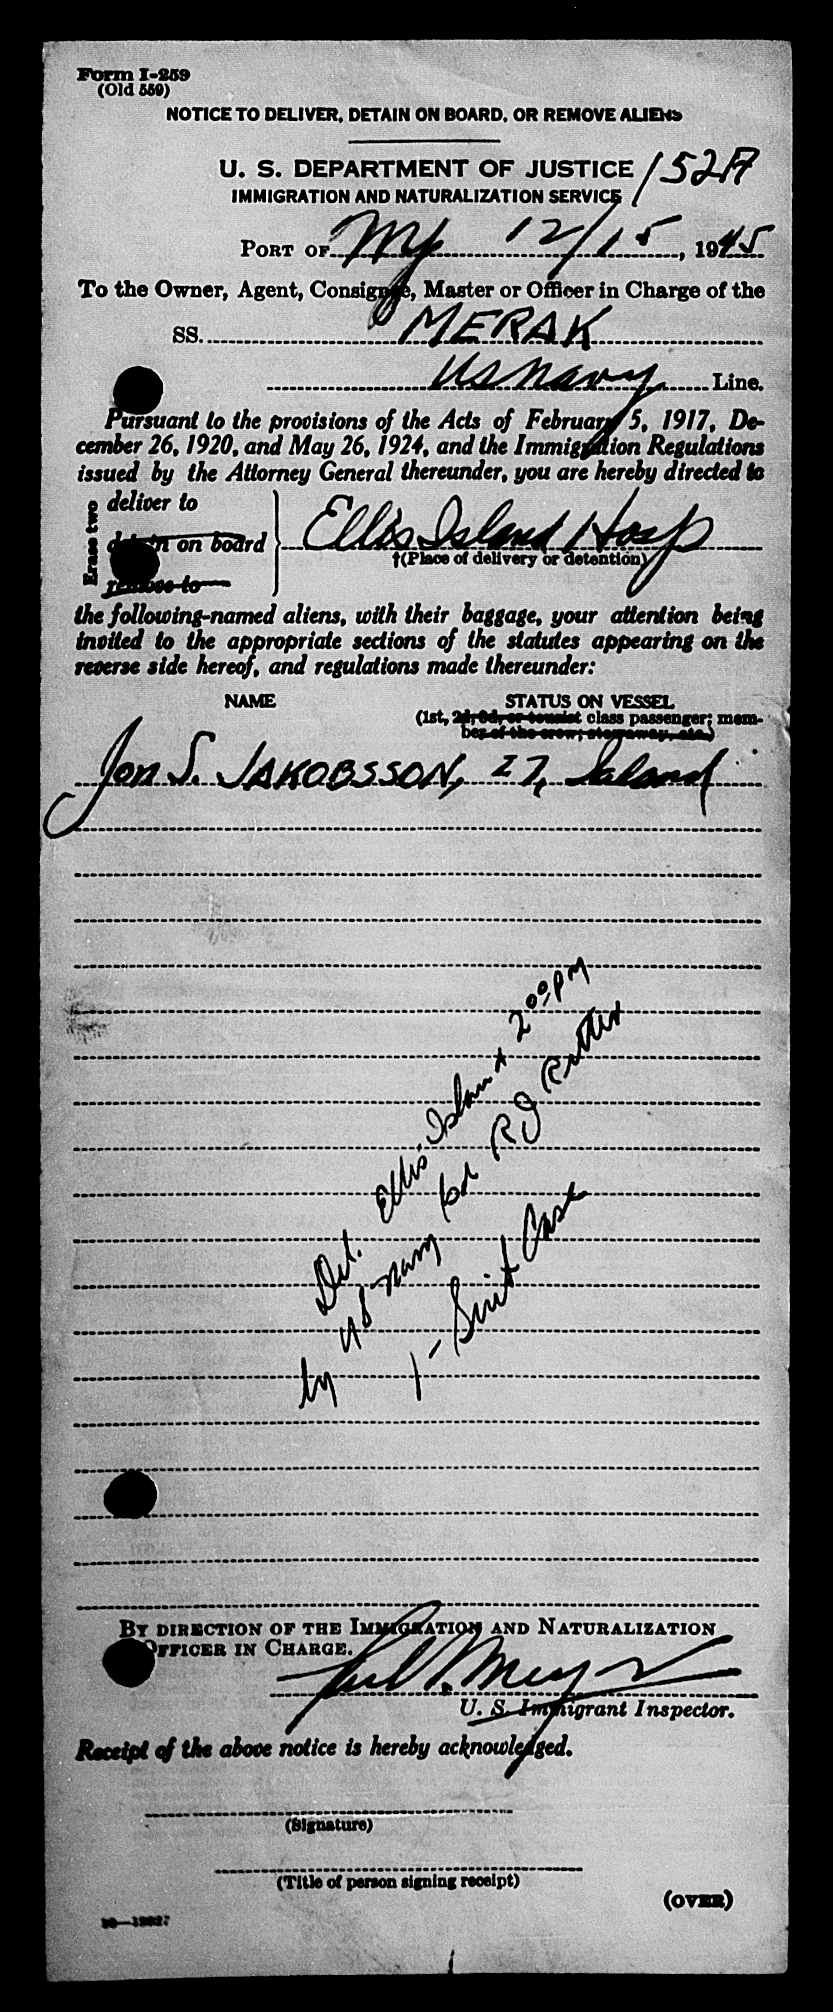 Form I-259
(Old 559)
NOTICE TO DELIVER, DETAIN ON BOARD, OR REMOVE ALIENS
U. S. DEPARTMENT OF JUSTICE
IMMIGRATION AND NATURALIZATION SERVICE
PORT OF NY 12/15, 1945
To the Owner, Agent, Consignee, Master or Officer in Charge of the
SS. MERAK
US Navy Line.
Pursuant to the provisions of the Acts of February 5, 1917, De-
cember 26, 1920, and May 26, 1924, and the Immigration Regulations
issued by the Attorney General thereunder, you are hereby directed to
Erase two
deliver to
detain on board
remove to
Ellis Island Hosp
†(Place of delivery or detention)
the following-named aliens, with their baggage, your attention being
invited to the appropriate sections of the statutes appearing on the
reverse side hereof, and regulations made thereunder:
NAME STATUS ON VESSEL
(1st, 2d, 3d, or tourist class passenger; mem-
ber of the crew; stowaway, etc.)
Jon S. JAKOBSSON, 27, Island
Del. Ellis Island 2 00 PM
by US Navy RJ Ritter
1 - Suit Case
BY DIRECTION OF THE IMMIGRATION AND NATURALIZATION
OFFICER IN CHARGE.
U. S. Immigrant Inspector.
Receipt of the above notice is hereby acknowledged.
(Signature)
(Title of person signing receipt)
(OVER)